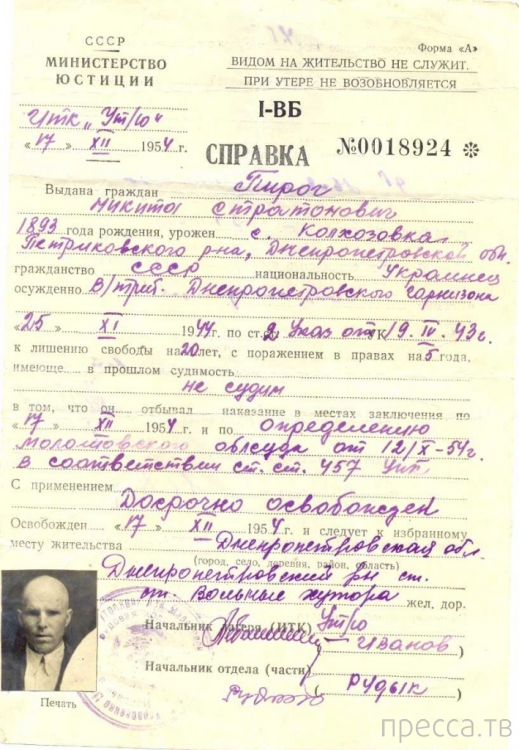 СССР
МИНИСТЕРСТВО
ЮСТИЦИИ
Форма «А»
ВИДОМ НА ЖИТЕЛЬСТВО НЕ СЛУЖИТ.
ПРИ УТЕРЕ НЕ ВОЗОБНОВЛЯЕТСЯ
I-ВБ
ИТК „Ут/ю“
«17» XII 1954 г.
СПРАВКА №0018924 *
Выдана граждан Пирог
Никита Стратонович
1893 года рождения, урожен с. Колхозовка
Петриковского рна, Днепропетровской обл.
гражданство СССР национальность Украинец
осужденно В/триб. Днепропетровского гарнизона
«25» XI 1944 г. по ст. 2 Указ от УК 19.IV.43г.
к лишению свободы на 20 лет, с поражением в правах на 5 года,
имеюще в прошлом судимость
не судим
в том, что он отбывал наказание в местах заключения по
«17» XII 1954 г. и по определению
Молотовского облсуда от 12/X-54г.
в соответствии ст. ст. 457 УПК
С применением
Досрочно освобожден
Освобожден «17» XII 1954 г. и следует к избранному
месту жительства Днепропетровская обл.
(город, село, деревня, район, область)
Днепропетровский рн ст.
ст. Вольные хутора жел. дор.
Начальник лагеря (ИТК) Ут/ю
Иванов
Начальник отдела (части)
Рудык
Печать
пресса.тв